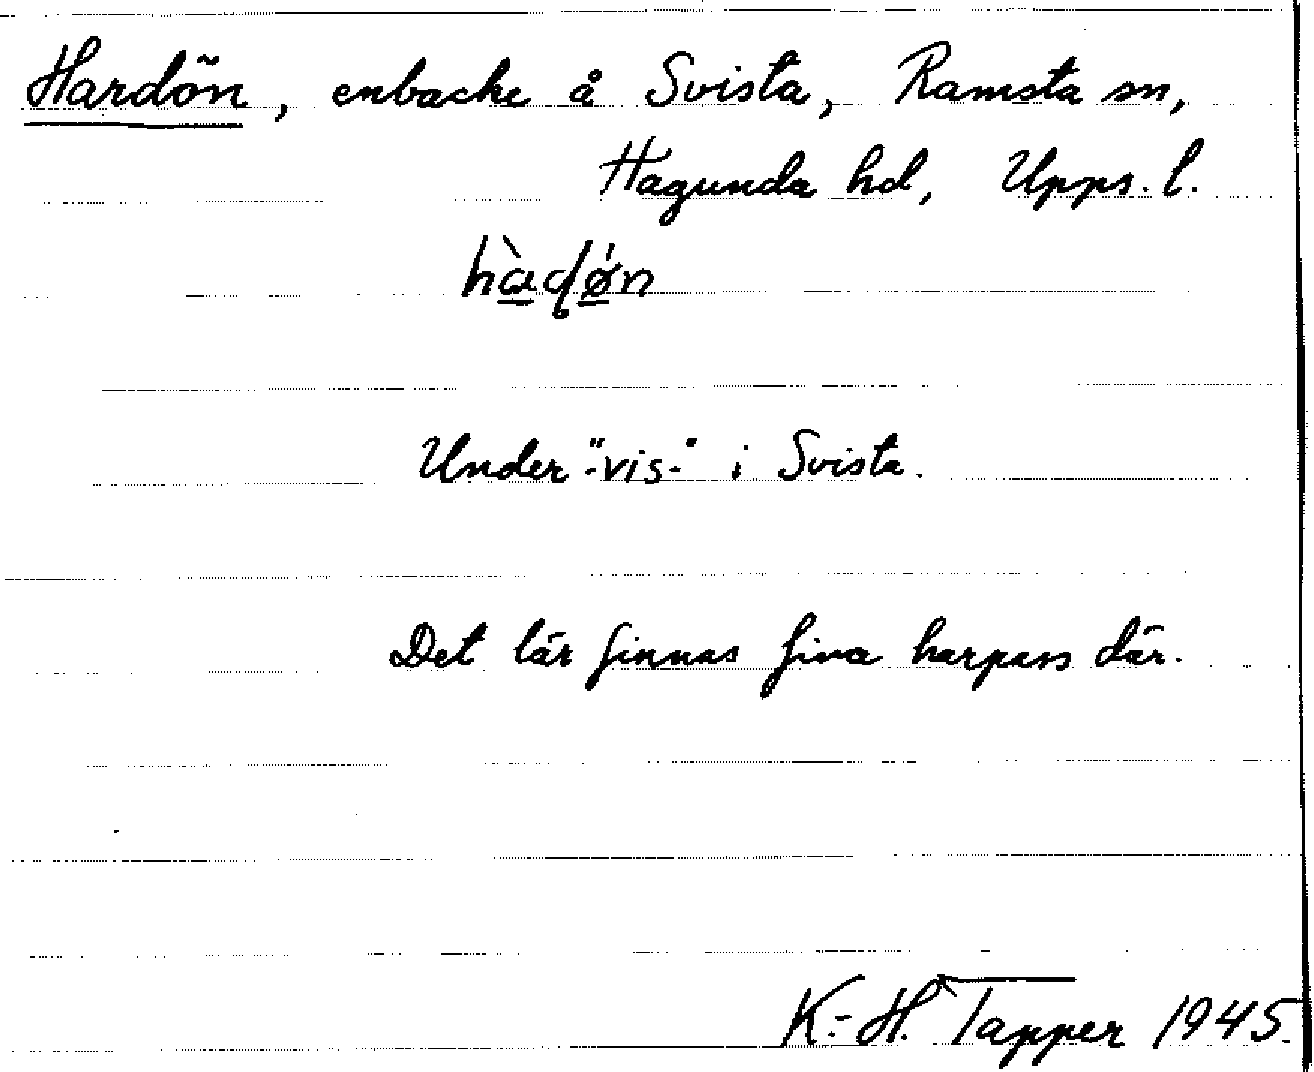 Hardön, enbacke å Svista, Ramsta sn,
Hagunda hd, Upps. l.
Under "-vis-" i Svista.
Det lär finnas fina harpass där.
K.-H. Tapper 1945.